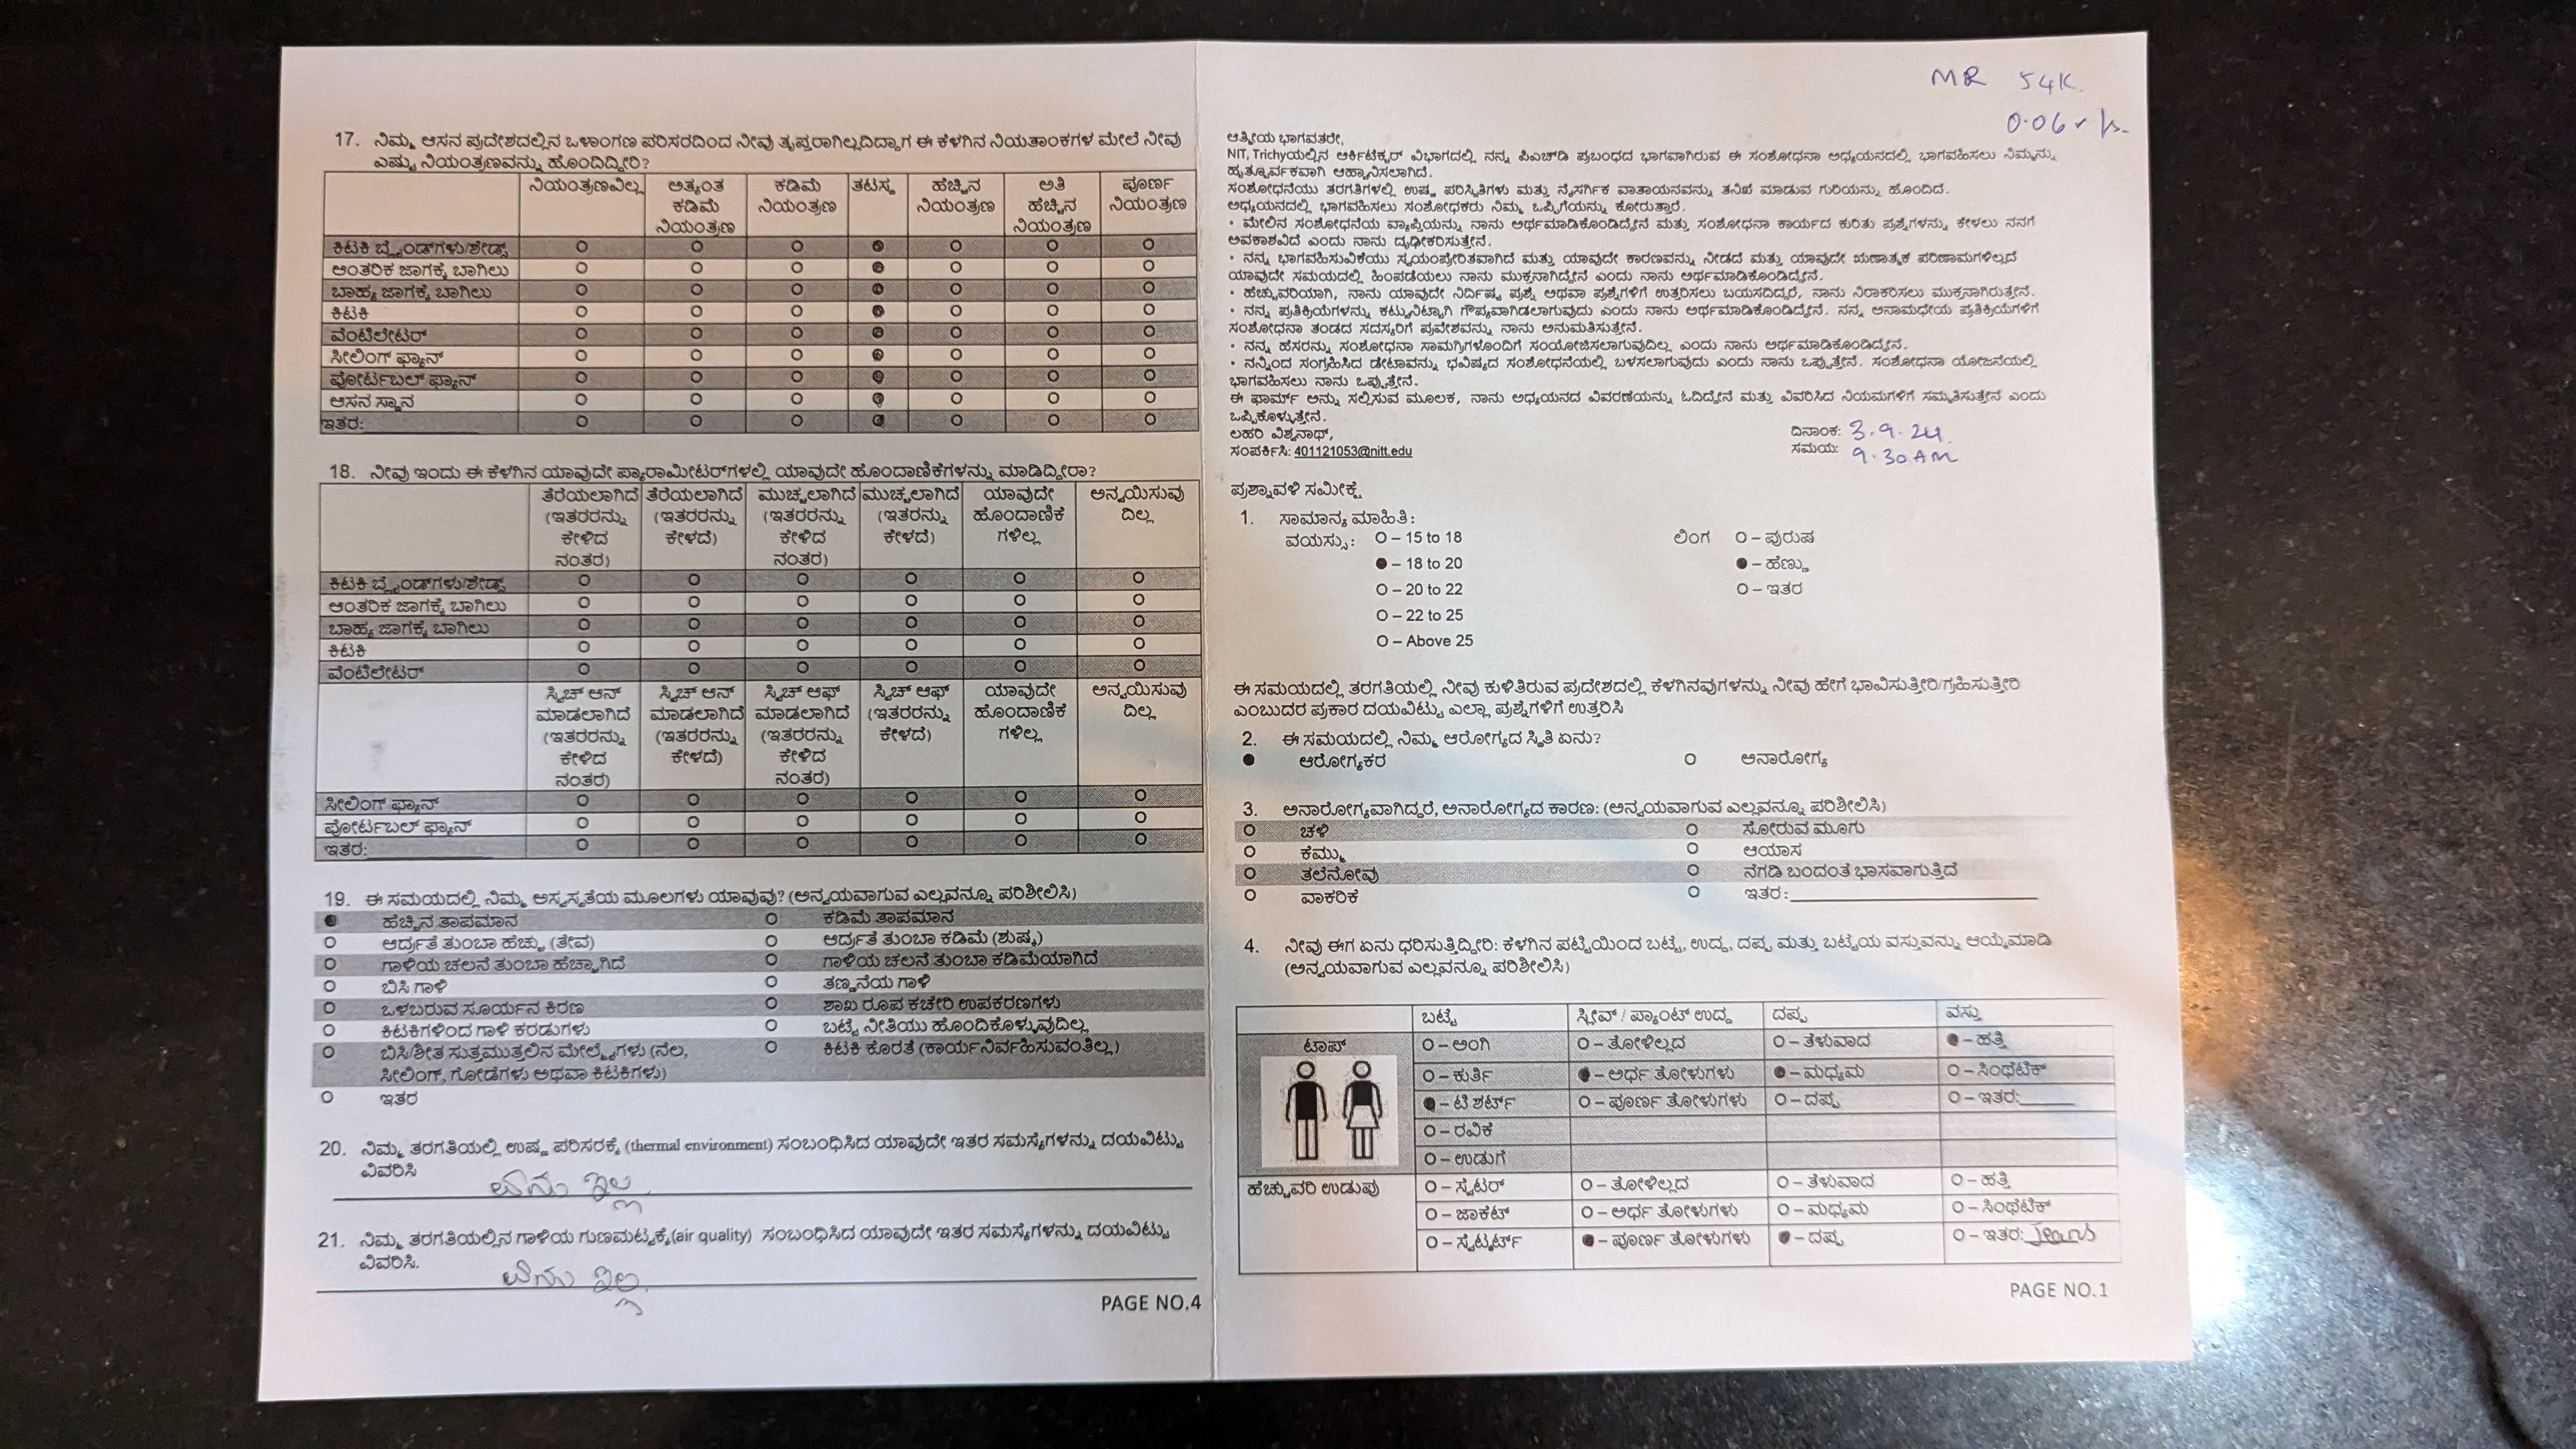 17. ನಿಮ್ಮ ಆಸನ ಪ್ರದೇಶದಲ್ಲಿನ ಒಳಾಂಗಣ ಪರಿಸರದಿಂದ ನೀವು ತೃಪ್ತರಾಗಿಲ್ಲದಿದ್ದಾಗ ಈ ಕೆಳಗಿನ ನಿಯತಾಂಕಗಳ ಮೇಲೆ ನೀವು
ಎಷ್ಟು ನಿಯಂತ್ರಣವನ್ನು ಹೊಂದಿದ್ದೀರಿ?
ನಿಯಂತ್ರಣವಿಲ್ಲ ಅತ್ಯಂತ ಕಡಿಮೆ ತಟಸ್ಥ ಹೆಚ್ಚಿನ ಅತಿ ಪೂರ್ಣ
ಕಡಿಮೆ ನಿಯಂತ್ರಣ ನಿಯಂತ್ರಣ ಹೆಚ್ಚಿನ ನಿಯಂತ್ರಣ
ನಿಯಂತ್ರಣ ನಿಯಂತ್ರಣ
ಕಿಟಕಿ ಬ್ಲೈಂಡ್‌ಗಳು/ಶೇಡ್ಸ್
ಆಂತರಿಕ ಜಾಗಕ್ಕೆ ಬಾಗಿಲು
ಬಾಹ್ಯ ಜಾಗಕ್ಕೆ ಬಾಗಿಲು
ಕಿಟಕಿ
ವೆಂಟಿಲೇಟರ್
ಸೀಲಿಂಗ್ ಫ್ಯಾನ್
ಪೋರ್ಟಬಲ್ ಫ್ಯಾನ್
ಆಸನ ಸ್ಥಾನ
ಇತರ:
18. ನೀವು ಇಂದು ಈ ಕೆಳಗಿನ ಯಾವುದೇ ಪ್ಯಾರಾಮೀಟರ್‌ಗಳಲ್ಲಿ ಯಾವುದೇ ಹೊಂದಾಣಿಕೆಗಳನ್ನು ಮಾಡಿದ್ದೀರಾ?
ತೆರೆಯಲಾಗಿದೆ ತೆರೆಯಲಾಗಿದೆ ಮುಚ್ಚಲಾಗಿದೆ ಮುಚ್ಚಲಾಗಿದೆ ಯಾವುದೇ ಅನ್ವಯಿಸುವು
(ಇತರರನ್ನು (ಇತರರನ್ನು (ಇತರರನ್ನು (ಇತರನ್ನು ಹೊಂದಾಣಿಕೆ ದಿಲ್ಲ
ಕೇಳಿದ ಕೇಳದೆ) ಕೇಳಿದ ಕೇಳದೆ) ಗಳಿಲ್ಲ
ನಂತರ) ನಂತರ)
ಕಿಟಕಿ ಬ್ಲೈಂಡ್‌ಗಳು/ಶೇಡ್ಸ್
ಆಂತರಿಕ ಜಾಗಕ್ಕೆ ಬಾಗಿಲು
ಬಾಹ್ಯ ಜಾಗಕ್ಕೆ ಬಾಗಿಲು
ಕಿಟಕಿ
ವೆಂಟಿಲೇಟರ್
ಸ್ವಿಚ್ ಆನ್ ಸ್ವಿಚ್ ಆನ್ ಸ್ವಿಚ್ ಆಫ್ ಸ್ವಿಚ್ ಆಫ್ ಯಾವುದೇ ಅನ್ವಯಿಸುವು
ಮಾಡಲಾಗಿದೆ ಮಾಡಲಾಗಿದೆ ಮಾಡಲಾಗಿದೆ (ಇತರರನ್ನು ಹೊಂದಾಣಿಕೆ ದಿಲ್ಲ
(ಇತರರನ್ನು (ಇತರರನ್ನು (ಇತರರನ್ನು ಕೇಳದೆ) ಗಳಿಲ್ಲ
ಕೇಳಿದ ಕೇಳದೆ) ಕೇಳಿದ
ನಂತರ) ನಂತರ)
ಸೀಲಿಂಗ್ ಫ್ಯಾನ್
ಪೋರ್ಟಬಲ್ ಫ್ಯಾನ್
ಇತರ:
19. ಈ ಸಮಯದಲ್ಲಿ ನಿಮ್ಮ ಅಸ್ವಸ್ಥತೆಯ ಮೂಲಗಳು ಯಾವುವು? (ಅನ್ವಯವಾಗುವ ಎಲ್ಲವನ್ನೂ ಪರಿಶೀಲಿಸಿ)
ಹೆಚ್ಚಿನ ತಾಪಮಾನ ಕಡಿಮೆ ತಾಪಮಾನ
ಆರ್ದ್ರತೆ ತುಂಬಾ ಹೆಚ್ಚು (ತೇವ) ಆರ್ದ್ರತೆ ತುಂಬಾ ಕಡಿಮೆ (ಶುಷ್ಕ)
ಗಾಳಿಯ ಚಲನೆ ತುಂಬಾ ಹೆಚ್ಚಾಗಿದೆ ಗಾಳಿಯ ಚಲನೆ ತುಂಬಾ ಕಡಿಮೆಯಾಗಿದೆ
ಬಿಸಿ ಗಾಳಿ ತಣ್ಣನೆಯ ಗಾಳಿ
ಒಳಬರುವ ಸೂರ್ಯನ ಕಿರಣ ಶಾಖ ರೂಪ ಕಚೇರಿ ಉಪಕರಣಗಳು
ಕಿಟಕಿಗಳಿಂದ ಗಾಳಿ ಕರಡುಗಳು ಬಟ್ಟೆ ನೀತಿಯು ಹೊಂದಿಕೊಳ್ಳುವುದಿಲ್ಲ
ಬಿಸಿ/ಶೀತ ಸುತ್ತಮುತ್ತಲಿನ ಮೇಲ್ಮೈಗಳು (ನೆಲ, ಕಿಟಕಿ ಕೊರತೆ (ಕಾರ್ಯನಿರ್ವಹಿಸುವಂತಿಲ್ಲ)
ಸೀಲಿಂಗ್, ಗೋಡೆಗಳು ಅಥವಾ ಕಿಟಕಿಗಳು)
ಇತರ
20. ನಿಮ್ಮ ತರಗತಿಯಲ್ಲಿ ಉಷ್ಣ ಪರಿಸರಕ್ಕೆ (thermal environment) ಸಂಬಂಧಿಸಿದ ಯಾವುದೇ ಇತರ ಸಮಸ್ಯೆಗಳನ್ನು ದಯವಿಟ್ಟು
ವಿವರಿಸಿ
ಏನು ಇಲ್ಲ
21. ನಿಮ್ಮ ತರಗತಿಯಲ್ಲಿನ ಗಾಳಿಯ ಗುಣಮಟ್ಟಕ್ಕೆ(air quality) ಸಂಬಂಧಿಸಿದ ಯಾವುದೇ ಇತರ ಸಮಸ್ಯೆಗಳನ್ನು ದಯವಿಟ್ಟು
ವಿವರಿಸಿ.
ಏನು ಇಲ್ಲ
PAGE NO.4
MR 54K
0.06
ಆತ್ಮೀಯ ಭಾಗವತರೇ,
NIT, Trichyಯಲ್ಲಿನ ಆರ್ಕಿಟೆಕ್ಚರ್ ವಿಭಾಗದಲ್ಲಿ ನನ್ನ ಪಿಎಚ್‌ಡಿ ಪ್ರಬಂಧದ ಭಾಗವಾಗಿರುವ ಈ ಸಂಶೋಧನಾ ಅಧ್ಯಯನದಲ್ಲಿ ಭಾಗವಹಿಸಲು ನಿಮ್ಮನ್ನು
ಹೃತ್ಪೂರ್ವಕವಾಗಿ ಆಹ್ವಾನಿಸಲಾಗಿದೆ.
ಸಂಶೋಧನೆಯು ತರಗತಿಗಳಲ್ಲಿ ಉಷ್ಣ ಪರಿಸ್ಥಿತಿಗಳು ಮತ್ತು ನೈಸರ್ಗಿಕ ವಾತಾಯನವನ್ನು ತನಿಖೆ ಮಾಡುವ ಗುರಿಯನ್ನು ಹೊಂದಿದೆ.
ಅಧ್ಯಯನದಲ್ಲಿ ಭಾಗವಹಿಸಲು ಸಂಶೋಧಕರು ನಿಮ್ಮ ಒಪ್ಪಿಗೆಯನ್ನು ಕೋರುತ್ತಾರೆ.
• ಮೇಲಿನ ಸಂಶೋಧನೆಯ ವ್ಯಾಪ್ತಿಯನ್ನು ನಾನು ಅರ್ಥಮಾಡಿಕೊಂಡಿದ್ದೇನೆ ಮತ್ತು ಸಂಶೋಧನಾ ಕಾರ್ಯದ ಕುರಿತು ಪ್ರಶ್ನೆಗಳನ್ನು ಕೇಳಲು ನನಗೆ
ಅವಕಾಶವಿದೆ ಎಂದು ನಾನು ದೃಢೀಕರಿಸುತ್ತೇನೆ.
• ನನ್ನ ಭಾಗವಹಿಸುವಿಕೆಯು ಸ್ವಯಂಪ್ರೇರಿತವಾಗಿದೆ ಮತ್ತು ಯಾವುದೇ ಕಾರಣವನ್ನು ನೀಡದೆ ಮತ್ತು ಯಾವುದೇ ಋಣಾತ್ಮಕ ಪರಿಣಾಮಗಳಿಲ್ಲದೆ
ಯಾವುದೇ ಸಮಯದಲ್ಲಿ ಹಿಂಪಡೆಯಲು ನಾನು ಮುಕ್ತನಾಗಿದ್ದೇನೆ ಎಂದು ನಾನು ಅರ್ಥಮಾಡಿಕೊಂಡಿದ್ದೇನೆ.
• ಹೆಚ್ಚುವರಿಯಾಗಿ, ನಾನು ಯಾವುದೇ ನಿರ್ದಿಷ್ಟ ಪ್ರಶ್ನೆ ಅಥವಾ ಪ್ರಶ್ನೆಗಳಿಗೆ ಉತ್ತರಿಸಲು ಬಯಸದಿದ್ದರೆ, ನಾನು ನಿರಾಕರಿಸಲು ಮುಕ್ತನಾಗಿರುತ್ತೇನೆ.
• ನನ್ನ ಪ್ರತಿಕ್ರಿಯೆಗಳನ್ನು ಕಟ್ಟುನಿಟ್ಟಾಗಿ ಗೌಪ್ಯವಾಗಿಡಲಾಗುವುದು ಎಂದು ನಾನು ಅರ್ಥಮಾಡಿಕೊಂಡಿದ್ದೇನೆ. ನನ್ನ ಅನಾಮಧೇಯ ಪ್ರತಿಕ್ರಿಯೆಗಳಿಗೆ
ಸಂಶೋಧನಾ ತಂಡದ ಸದಸ್ಯರಿಗೆ ಪ್ರವೇಶವನ್ನು ನಾನು ಅನುಮತಿಸುತ್ತೇನೆ.
• ನನ್ನ ಹೆಸರನ್ನು ಸಂಶೋಧನಾ ಸಾಮಗ್ರಿಗಳೊಂದಿಗೆ ಸಂಯೋಜಿಸಲಾಗುವುದಿಲ್ಲ ಎಂದು ನಾನು ಅರ್ಥಮಾಡಿಕೊಂಡಿದ್ದೇನೆ.
• ನನ್ನಿಂದ ಸಂಗ್ರಹಿಸಿದ ಡೇಟಾವನ್ನು ಭವಿಷ್ಯದ ಸಂಶೋಧನೆಯಲ್ಲಿ ಬಳಸಲಾಗುವುದು ಎಂದು ನಾನು ಒಪ್ಪುತ್ತೇನೆ. ಸಂಶೋಧನಾ ಯೋಜನೆಯಲ್ಲಿ
ಭಾಗವಹಿಸಲು ನಾನು ಒಪ್ಪುತ್ತೇನೆ.
ಈ ಫಾರ್ಮ್ ಅನ್ನು ಸಲ್ಲಿಸುವ ಮೂಲಕ, ನಾನು ಅಧ್ಯಯನದ ವಿವರಣೆಯನ್ನು ಓದಿದ್ದೇನೆ ಮತ್ತು ವಿವರಿಸಿದ ನಿಯಮಗಳಿಗೆ ಸಮ್ಮತಿಸುತ್ತೇನೆ ಎಂದು
ಒಪ್ಪಿಕೊಳ್ಳುತ್ತೇನೆ.
ಲಹರಿ ವಿಶ್ವನಾಥ್, ದಿನಾಂಕ: 3.9.24
ಸಂಪರ್ಕಿಸಿ: 401121053@nitt.edu ಸಮಯ: 9.30AM
ಪ್ರಶ್ನಾವಳಿ ಸಮೀಕ್ಷೆ
1. ಸಾಮಾನ್ಯ ಮಾಹಿತಿ:
ವಯಸ್ಸು: – 15 to 18 ಲಿಂಗ – ಪುರುಷ
– 18 to 20 – ಹೆಣ್ಣು
– 20 to 22 – ಇತರ
– 22 to 25
– Above 25
ಈ ಸಮಯದಲ್ಲಿ ತರಗತಿಯಲ್ಲಿ ನೀವು ಕುಳಿತಿರುವ ಪ್ರದೇಶದಲ್ಲಿ ಕೆಳಗಿನವುಗಳನ್ನು ನೀವು ಹೇಗೆ ಭಾವಿಸುತ್ತೀರಿ/ಗ್ರಹಿಸುತ್ತೀರಿ
ಎಂಬುದರ ಪ್ರಕಾರ ದಯವಿಟ್ಟು ಎಲ್ಲಾ ಪ್ರಶ್ನೆಗಳಿಗೆ ಉತ್ತರಿಸಿ
2. ಈ ಸಮಯದಲ್ಲಿ ನಿಮ್ಮ ಆರೋಗ್ಯದ ಸ್ಥಿತಿ ಏನು?
ಆರೋಗ್ಯಕರ ಅನಾರೋಗ್ಯ
3. ಅನಾರೋಗ್ಯವಾಗಿದ್ದರೆ, ಅನಾರೋಗ್ಯದ ಕಾರಣ: (ಅನ್ವಯವಾಗುವ ಎಲ್ಲವನ್ನೂ ಪರಿಶೀಲಿಸಿ)
ಚಳಿ ಸೋರುವ ಮೂಗು
ಕೆಮ್ಮು ಆಯಾಸ
ತಲೆನೋವು ನೆಗಡಿ ಬಂದಂತೆ ಭಾಸವಾಗುತ್ತಿದೆ
ವಾಕರಿಕೆ ಇತರ:
4. ನೀವು ಈಗ ಏನು ಧರಿಸುತ್ತಿದ್ದೀರಿ: ಕೆಳಗಿನ ಪಟ್ಟಿಯಿಂದ ಬಟ್ಟೆ, ಉದ್ದ, ದಪ್ಪ ಮತ್ತು ಬಟ್ಟೆಯ ವಸ್ತುವನ್ನು ಆಯ್ಕೆಮಾಡಿ
(ಅನ್ವಯವಾಗುವ ಎಲ್ಲವನ್ನೂ ಪರಿಶೀಲಿಸಿ)
ಬಟ್ಟೆ ಸ್ಲೀವ್ / ಪ್ಯಾಂಟ್ ಉದ್ದ ದಪ್ಪ ವಸ್ತು
ಟಾಪ್ – ಅಂಗಿ – ತೋಳಿಲ್ಲದ – ತೆಳುವಾದ – ಹತ್ತಿ
– ಕುರ್ತಿ – ಅರ್ಧ ತೋಳುಗಳು – ಮಧ್ಯಮ – ಸಿಂಥೆಟಿಕ್
– ಟಿ ಶರ್ಟ್ – ಪೂರ್ಣ ತೋಳುಗಳು – ದಪ್ಪ – ಇತರ:
– ರವಿಕೆ
– ಉಡುಗೆ
ಹೆಚ್ಚುವರಿ ಉಡುಪು – ಸ್ವೆಟರ್ – ತೋಳಿಲ್ಲದ – ತೆಳುವಾದ – ಹತ್ತಿ
– ಜಾಕೆಟ್ – ಅರ್ಧ ತೋಳುಗಳು – ಮಧ್ಯಮ – ಸಿಂಥೆಟಿಕ್
– ಸ್ವೆಟ್ಶರ್ಟ್ – ಪೂರ್ಣ ತೋಳುಗಳು – ದಪ್ಪ – ಇತರ: Jeans
PAGE NO.1